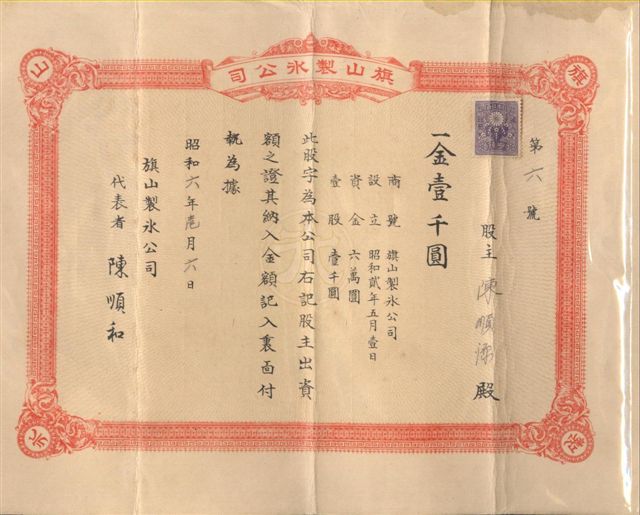 旗山製氷公司
旗
山
製
氷
第六號
股主 陳順 殿
一金壹千圓
商號 旗山製氷公司
設立 昭和貳年五月壹日
資金 六萬圓
壹股 壹千圓
此股字為本公司右記股主出資
額之證其納入金額記入裏面付
執為據
昭和六年 月六日
旗山製氷公司
代表者 陳順和